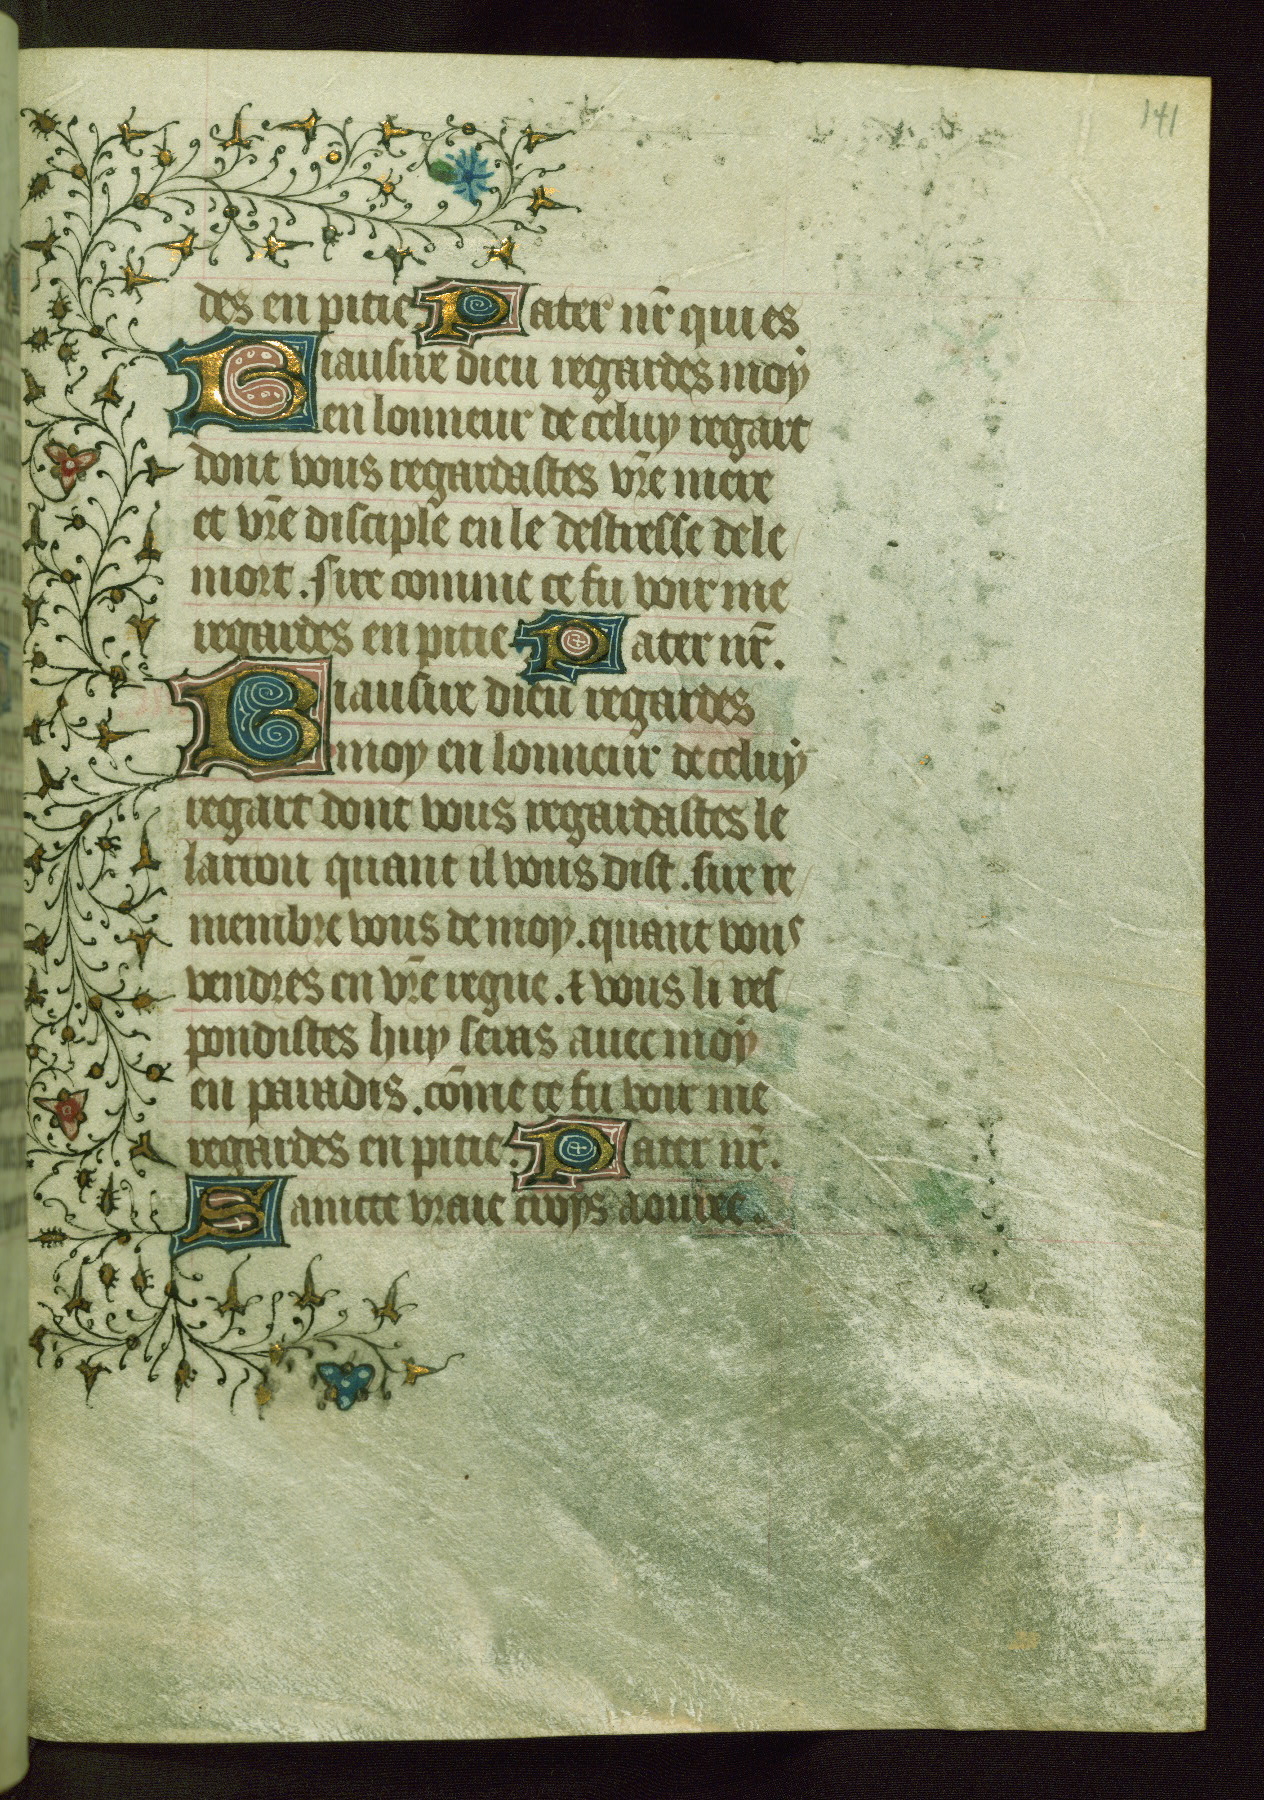 141
des en pitie. Pater nr̄ qui es
Biausire dieu regardes moy
en lonneur de celuy regart
dont vous regardastes vr̄e mere
et vr̄e disciple en le destresse de le
mort. sire comme ce fu voir me
regardes en pitie Pater nr̄.
Biausire dieu regardes
moy en lonneur de celuy
regart dont vous regardastes le
larron quant il vous dist. sire re
membre vous de moy. quant vous
vendres en vr̄e regne. & vous li res
pondistes huy seras auec moy
en paradis. cōme ce fu voir me
regardes en pitie. Pater nr̄.
Saincte vraie croys aouree.